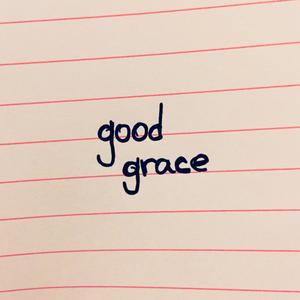 good
grace